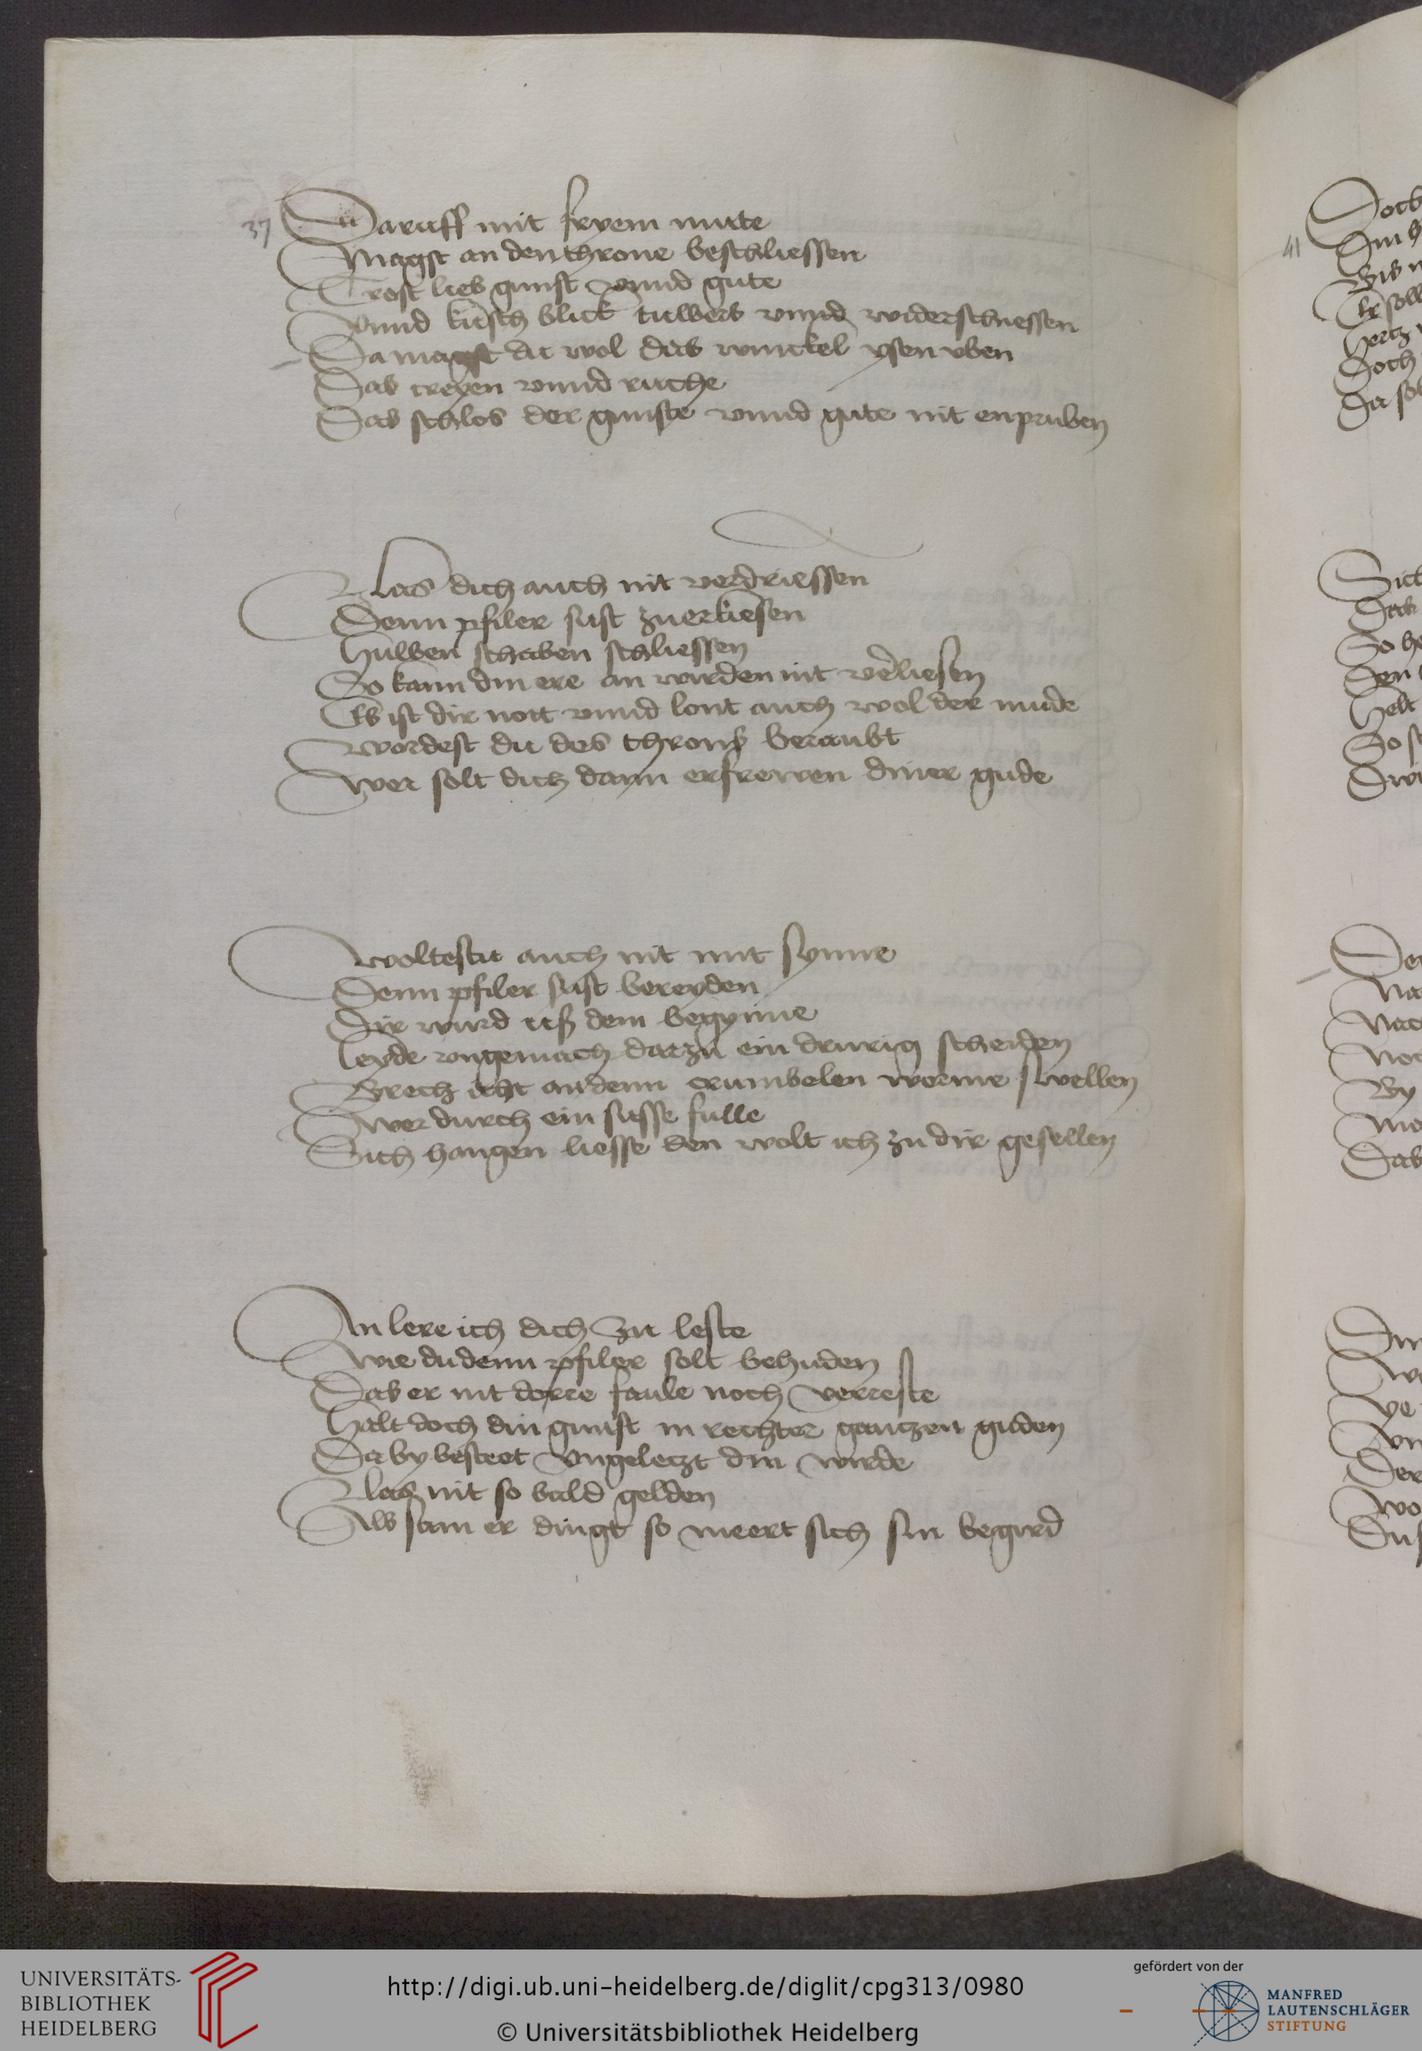 37
Daruff mit fryem mute
Magst an den throne beschliessen
Trost lieb gunst vnnd gute
Vnnd kusch blick tuwers vnnd widerschiessen
Da magst du wol das winckel ysen vben
Das treyen vnnd ruche
Das schlos der gunste vnnd gute nit enpruben
Las dich auch nit verdriessen
Denn pfiler sust zuerkiesen
Hulben schaben schliessen
So kann din ere an wirden nit verliesen
Es ist dir nott vnnd lont auch wol der mude
Wordest du des throns beraubt
Wer solt dich dann erfrewen diner gude
Woltestu auch nit mit synne
Denn pfiler sust bereyden
Dir wurd uß dem begynne
Leyde vngemach darzu ein drurig scheiden
Brech icht an denn crumbelen worme swellen
Wer durch ein susse fulle
Sich hangen liesse den wolt ich zu dir gesellen
An lere ich dich zu leste
Wie du denn pfiler solt behuden
Das er nit dorre faule noch verreste
Halt doch din gunst in rechter gantzen guden
Da by besteet vngeletzt din wirde
Las nit so bald gelden
Als sam er dingt so meert sich sin begird
41
Doch
UNIVERSITÄTS-
BIBLIOTHEK
HEIDELBERG
http://digi.ub.uni-heidelberg.de/diglit/cpg313/0980
© Universitätsbibliothek Heidelberg
gefördert von der
MANFRED
LAUTENSCHLÄGER
STIFTUNG